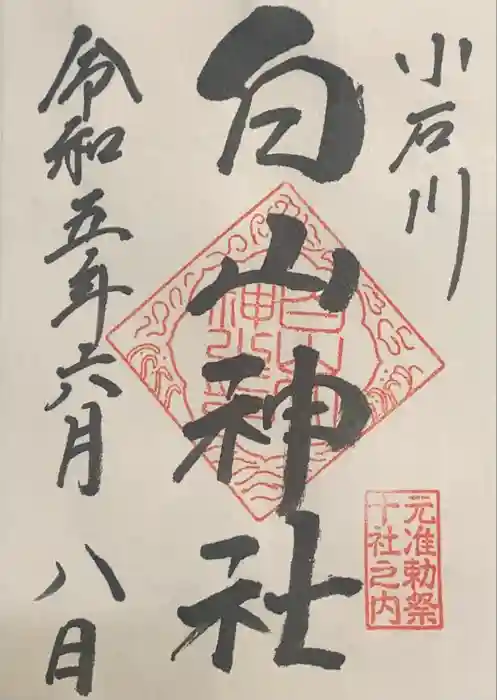 小石川
白山神社
令和五年六月八日
元准勅祭
十社之内